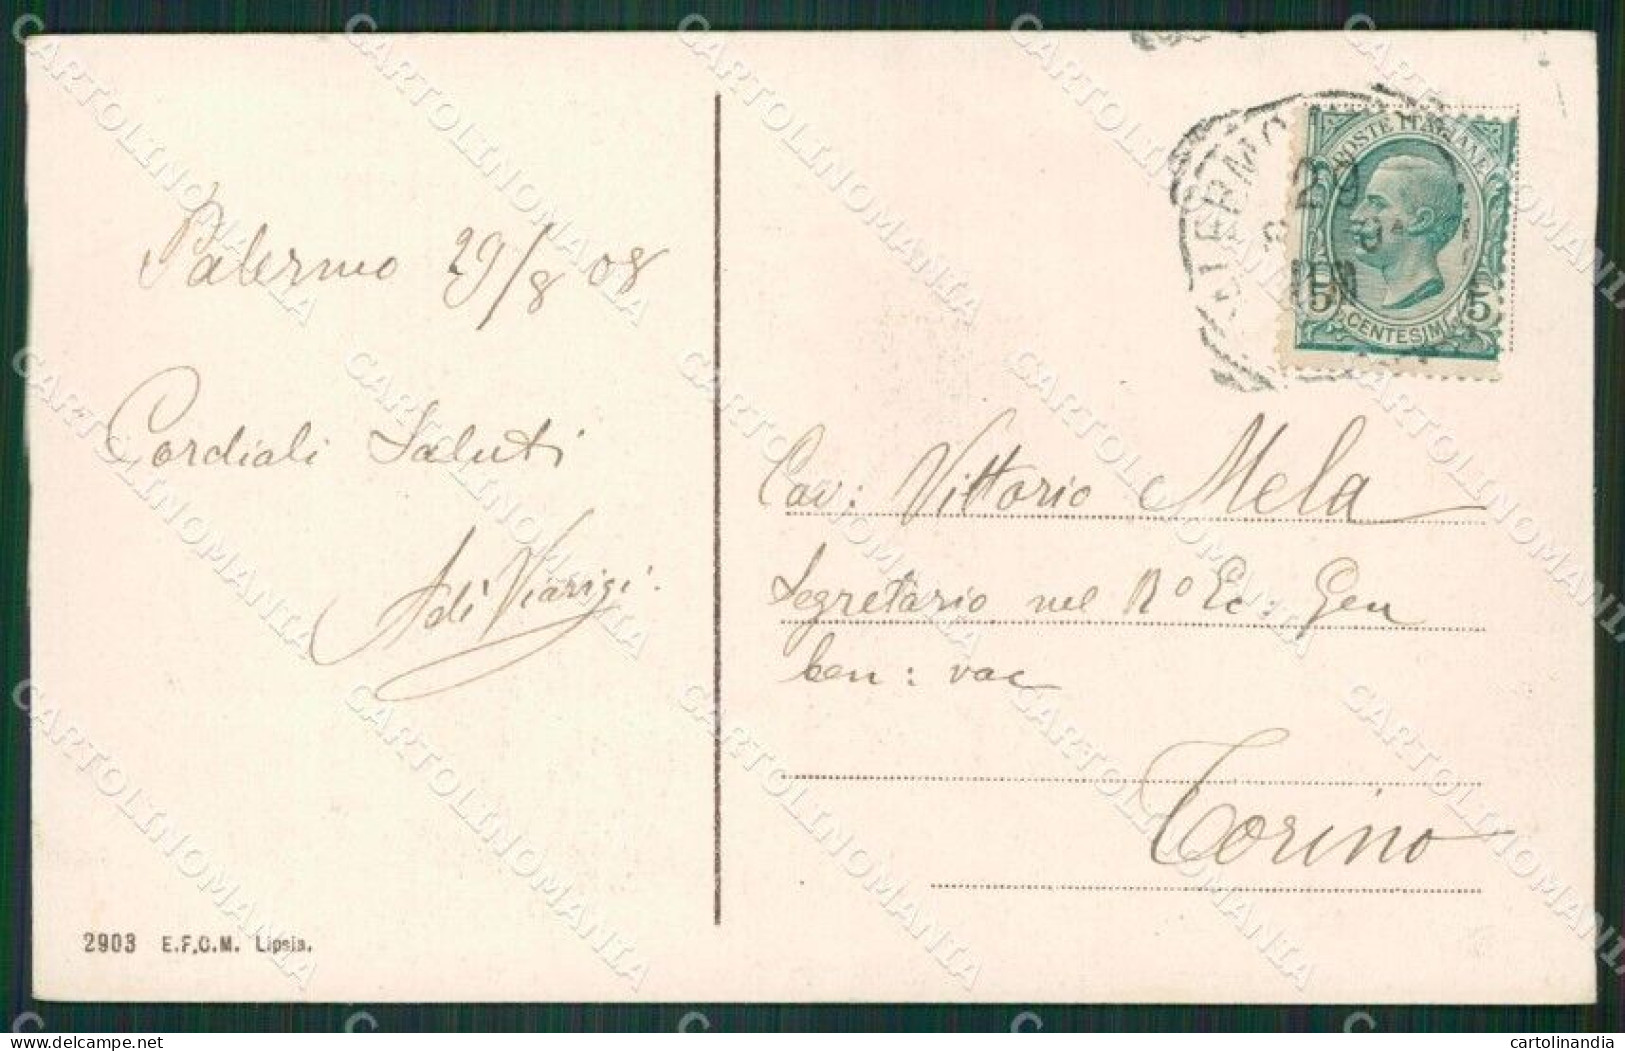 Palermo 29/8 08
Cordiali Saluti
A di Viarigi.
2903 E.F.C.M. Lipsia.
POSTE ITALIANE
5 CENTESIMI 5
29
Cav: Vittorio Mela
Segretario nel Rº Ec: Gen
ben: vac
Torino
CARTOLINOMANIA
cartolinandia